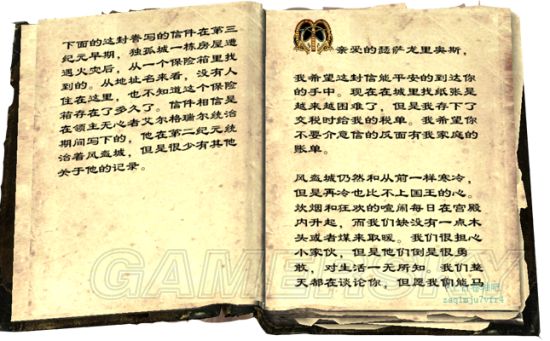 下面的这封眷写的信件在第三
纪元早期，独孤城一栋房屋遭
遇火灾后，从一个保险箱里找
到的。从地址名来看，没有人
住在这里，也不知道这个保险
箱存在了多久了。信件相信是
在领主无心者艾尔格瑞尔统治
期间写下的，他在第二纪元统
治着风盔城，但是很少有其他
关于他的记录。
亲爱的瑟萨龙里奥斯，
我希望这封信能平安的到达你
的手中。现在在城里找纸张是
越来越困难了，但是我存下了
交税时给我的税单。我希望你
不要介意信的反面有我家庭的
账单。
风盔城仍然和从前一样寒冷，
但是再冷也比不上国王的心。
炊烟和狂欢的喧闹每日在宫殿
内升起，而我们缺没有一点木
头或者煤来取暖。我们很担心
小家伙，但是他们倒是很勇
敢，对生活一无所知。我们整
天都在谈论你，但愿我们能马
GAMERSKY
zaq1mju7vfr4